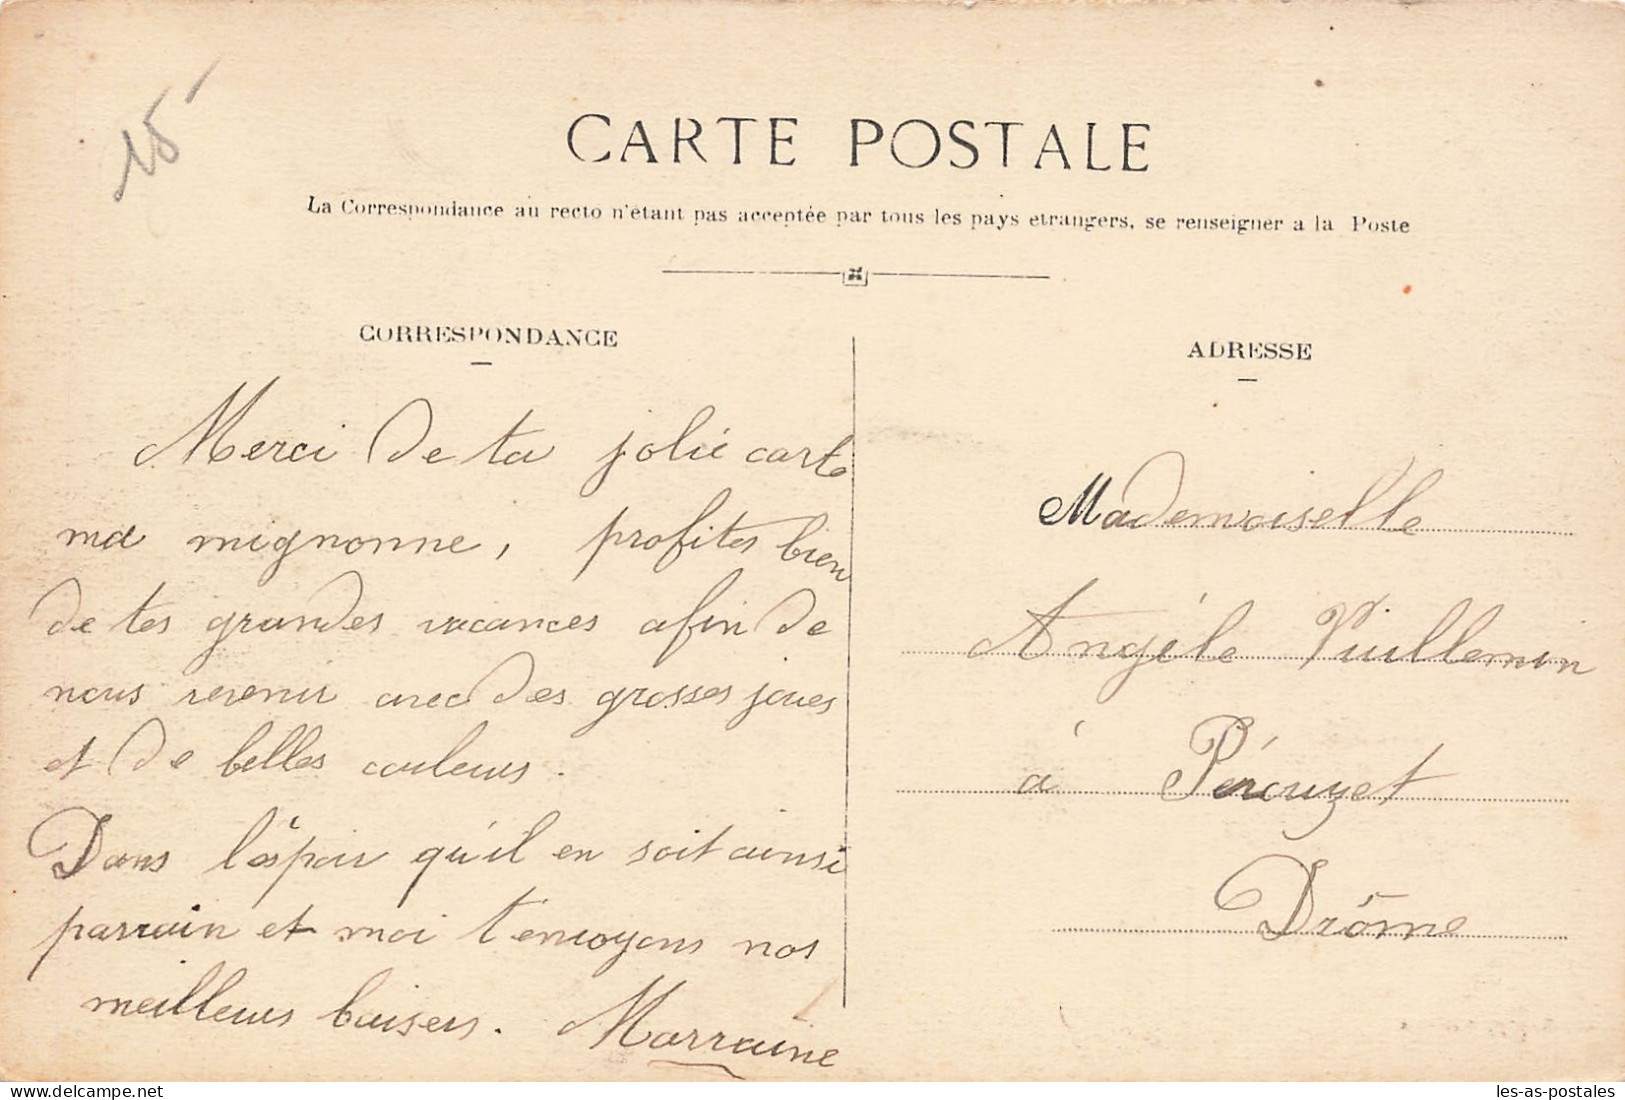 15
CARTE POSTALE
La Correspondance au recto n'étant pas acceptée par tous les pays etrangers, se renseigner a la Poste
CORRESPONDANCE
Merci de ta jolie carte
ma mignonne, profites bien
de tes grandes vacances afin de
nous revenir avec des grosses joues
et de belles couleurs.
Dans l'espoir qu'il en soit ainsi
parrain et moi t'envoyons nos
meilleurs baisers. Marraine
ADRESSE
Mademoiselle
Angéle Vuillemin
à Pérouzet
Drôme
www.delcampe.net
les-as-postales